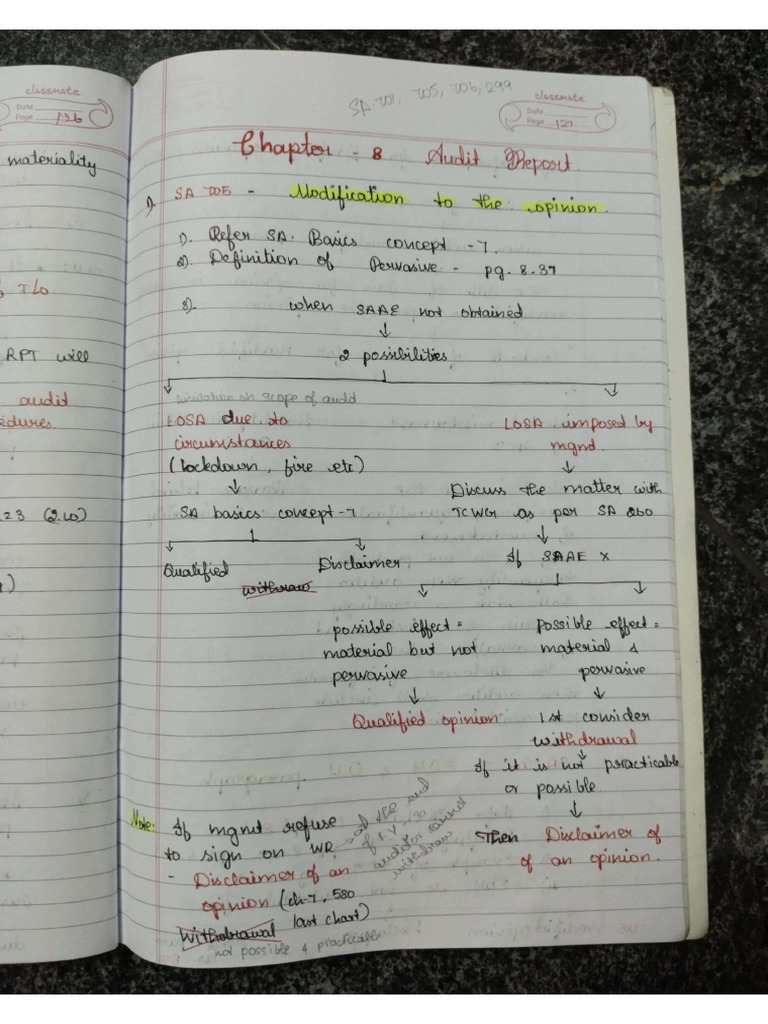 classmate
Date
Page 126
materiality
T/O
RPT will
audit
edures.
23 (2.10)
SA 701, 705, 706, 299
classmate
Date
Page 127
Chapter - 8 Audit Report.
1). SA 705 - Modification to the opinion.
1). Refer SA. Basics concept - 7.
2). Definition of Pervasive - pg. 8.37
3). when SAAE not obtained
↓
2 possibilities
limitation on scope of audit
LOSA due to circumstances
(lockdown, fire etc)
↓
SA basics concept - 7
Qualified Disclaimer
withdraw
LOSA imposed by mgnd.
↓
Discuss the matter with
TCWG as per SA 260
↓
If SAAE X
possible effect =
material but not
pervasive
↓
Qualified opinion.
Possible effect =
material &
pervasive
↓
1st consider
withdrawal
↓
If it is not practicable
or possible.
↓
Then Disclaimer of
of an opinion.
Note: If mgnt refuse
to sign on WR
- Disclaimer of an
opinion (ch-7, 580
last chart)
Withdrawal
not possible & practicable
auditor cannot
withdraw